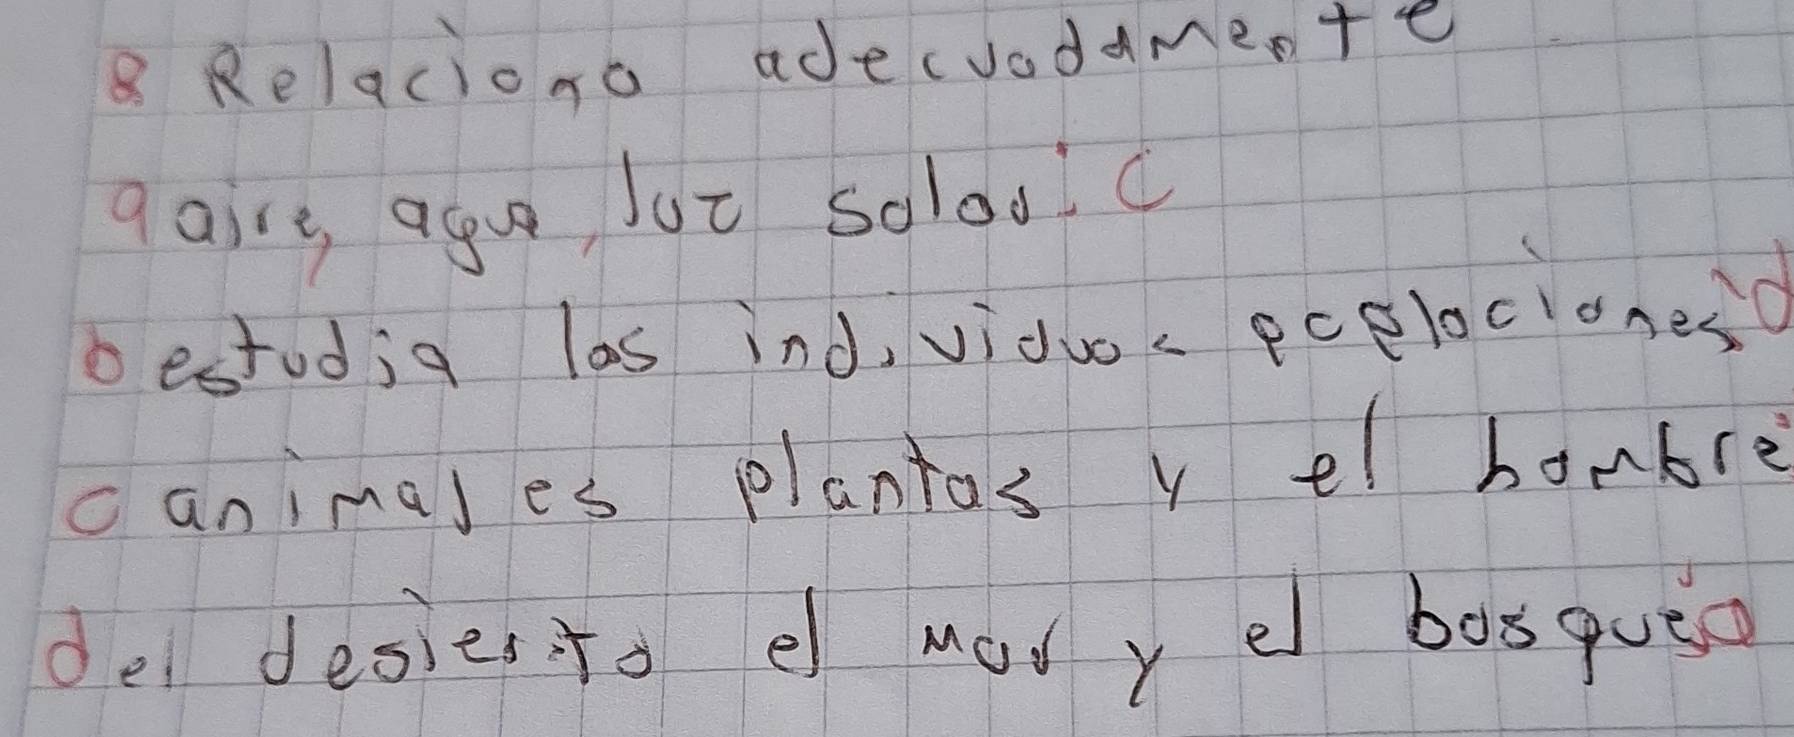 8 Relaciona adecuadamente
a aire, agua, luz solar: c
b estudia los individuos poplaciones: d
c animales plantas y el hombre:
d el desierto el mar y el bosque: a